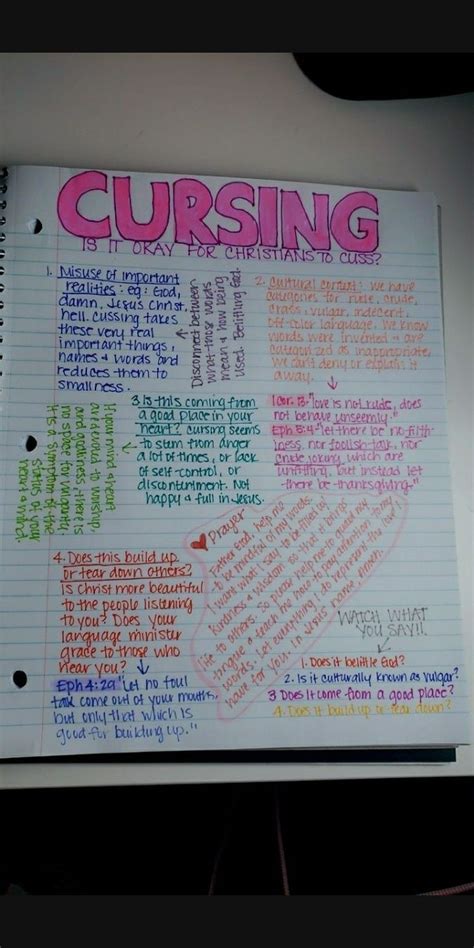 CURSING
IS IT OKAY FOR CHRISTIANS TO CUSS?
1. Misuse of important
realities: eg: God,
damn, Jesus Christ,
hell. cussing takes
these very real
important things,
names & words and
reduces them to
smallness.
Disconnect between
what these words
mean & how being
used. Belittling God.
2. cultural context: we have
categories for rude, crude,
crass, vulgar, indecent,
off-color language. We know
words were invented & are
categorized as inappropriate,
we can't deny or explain it
away.
1 Cor. 13- "love is not rude, does
not behave unseemly."
Eph 5:4- "let there be no filth-
iness, nor foolish talk, nor
crude joking which are
unfitting, but instead let
there be thanksgiving."
3. Is this coming from
a good place in your
heart? cursing seems
to stem from anger
a lot of times, or lack
of self-control, or
discontentment. Not
happy & full in Jesus.
If your mind & heart
are devoted to worship,
and godliness, there is
no space for vulgarity.
It is a symptom of the
status of your
heart & mind.
4. Does this build up
or tear down others?
is Christ more beautiful
to the people listening
to you? Does your
language minister
grace to those who
hear you?
Eph 4:29 "Let no foul
talk come out of your mouths,
but only that which is
good for building up."
Prayer
Father God, help me
to be mindful of my words.
I want what I say to be filled w/
kindness & wisdom, so that it brings
life to others. So please help me to guard my
tongue & teach me how to pay attention to my
words. Let everything I do represent the love I
have for you. in Jesus name, Amen.
WATCH WHAT
YOU SAY!!
1. Does it belittle God?
2. Is it culturally known as vulgar?
3 Does it come from a good place?
4. Does it build up or tear down?